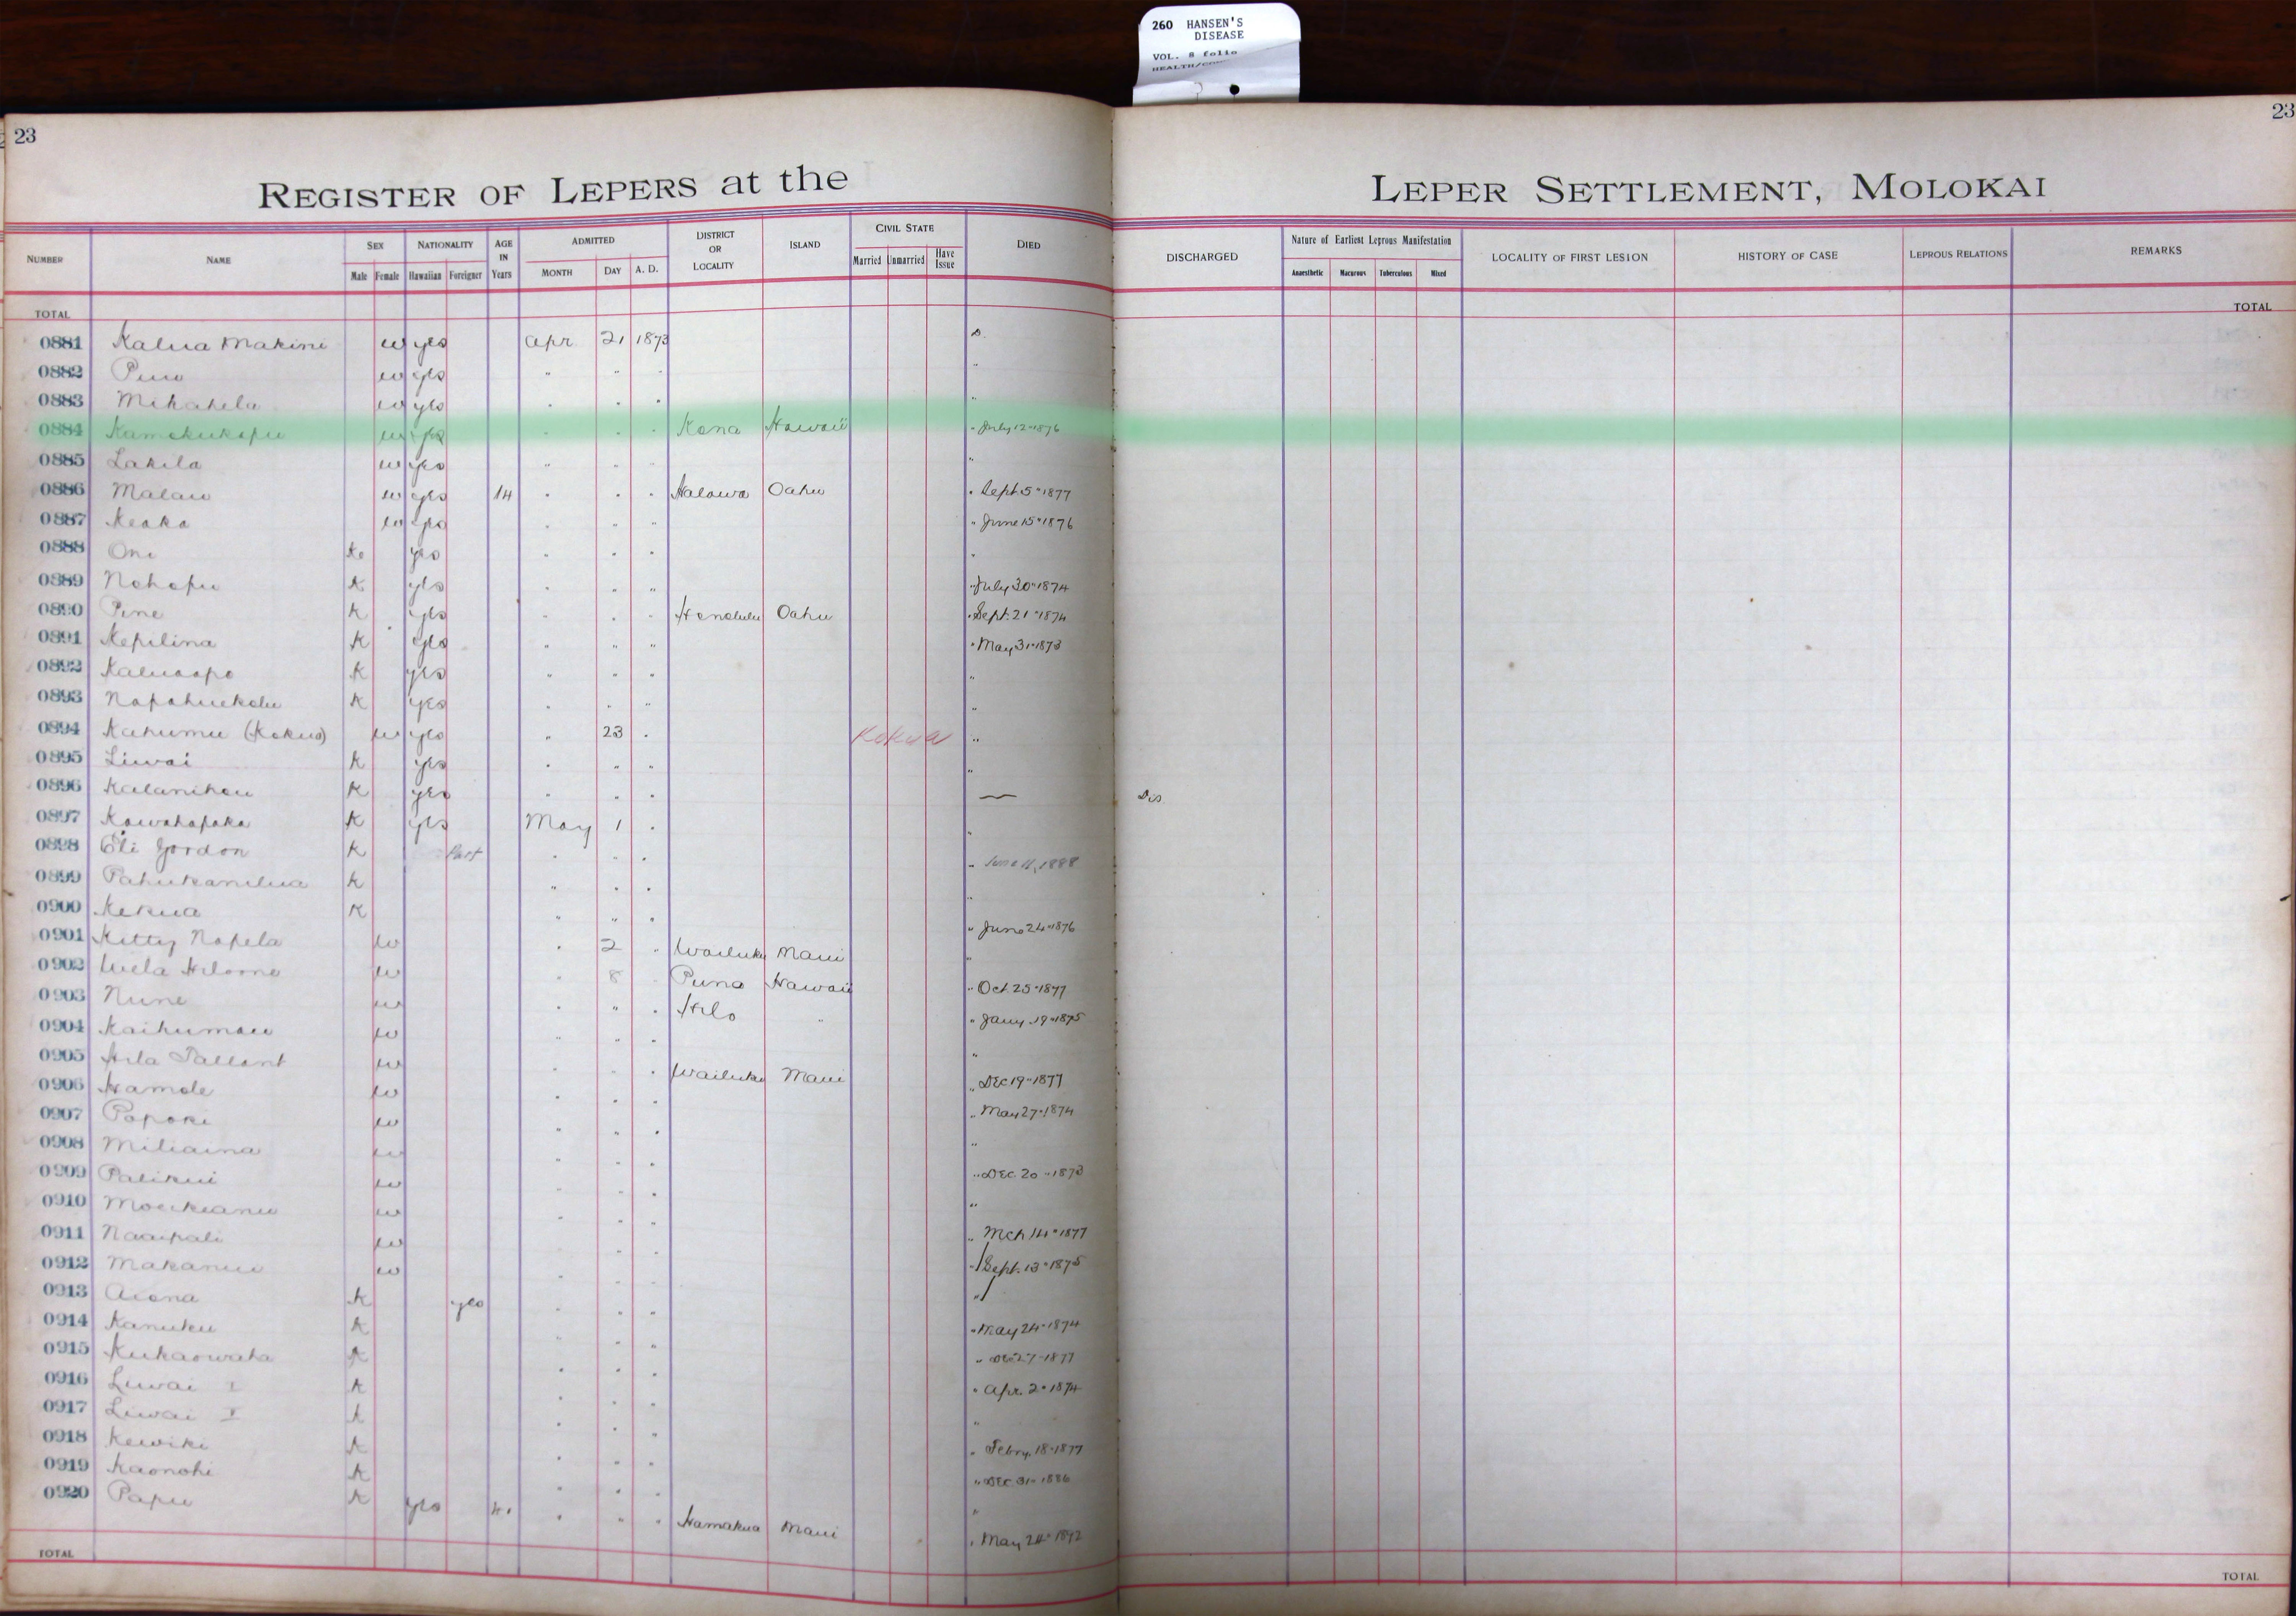 260 HANSEN'S
DISEASE
VOL. 8 folio
23
23
REGISTER OF LEPERS at the LEPER SETTLEMENT, MOLOKAI
NUMBER NAME SEX NATIONALITY AGE IN Years ADMITTED DISTRICT OR LOCALITY ISLAND CIVIL STATE DIED DISCHARGED Nature of Earliest Leprous Manifestation LOCALITY OF FIRST LESION HISTORY OF CASE LEPROUS RELATIONS REMARKS
Male Female Hawaiian Foreigner MONTH DAY A. D. Married Unmarried Have Issue Anaesthetic Macurous Tuberculous Mixed
TOTAL TOTAL
0881 Kalua Makini w yes Apr 21 1873 D.
0882 w yes " " " "
0883 Mikahela w yes " " " "
0884 Kamokukapu w yes " " " Kona Hawaii " July 12 " 1876
0885 Lakila w yes " " " "
0886 Malau w yes 14 " " " Halawa Oahu " Sept. 5 " 1877
0887 Keaka w yes " " " " June 15 " 1876
0888 Oni K yes " " " "
0889 Nohopu K yes " " " " July 30 " 1874
0890 Pine K yes " " " Honolulu Oahu " Sept. 21 " 1874
0891 Kepilina K yes " " " " May 31 " 1873
0892 Kaluaopo K yes " " " "
0893 Napahuekolu K yes " " " "
0894 Kahumu (Kokua) w yes " 23 " Kokua "
0895 Liwai K yes " " " "
0896 Kalanihou K yes " " " — Dis
0897 Kawahapaka K yes May 1 " "
0898 Eli Gordon K Part " " " " June 11, 1888
0899 Pahukanilua K " " " "
0900 Kekua K " " " " June 24 " 1876
0901 Kitty Napela w " 2 " Wailuku Maui "
0902 w " 8 " Puna Hawaii " Oct. 25 " 1877
0903 Nune w " " " Hilo " " Jany. 19 " 1875
0904 Kaihumau w " " " "
0905 Hila Tallant w " " " Wailuku Maui " Dec 19 " 1877
0906 Hamole w " " " " May 27 " 1874
0907 Papoki w " " " "
0908 Miliaina w " " " " Dec. 20 " 1873
0909 Palikui w " " " "
0910 w " " " " Mch 14 " 1877
0911 Naaipali w " " " " Sept. 13 " 1875
0912 Makanui w " " " "
0913 Aiona K yes " " " " May 24 " 1874
0914 Kanuku K " " " " Dec 27 " 1877
0915 Kukaowaha K " " " " Apr. 2 " 1874
0916 Liwai I K " " " "
0917 Liwai K " " " " Febry. 18 " 1877
0918 Kewiki K " " " " Dec. 31 " 1886
0919 Kaonohi K " " " "
0920 Papu K yes " " " Hamakua Maui " May 24 " 1892
TOTAL TOTAL